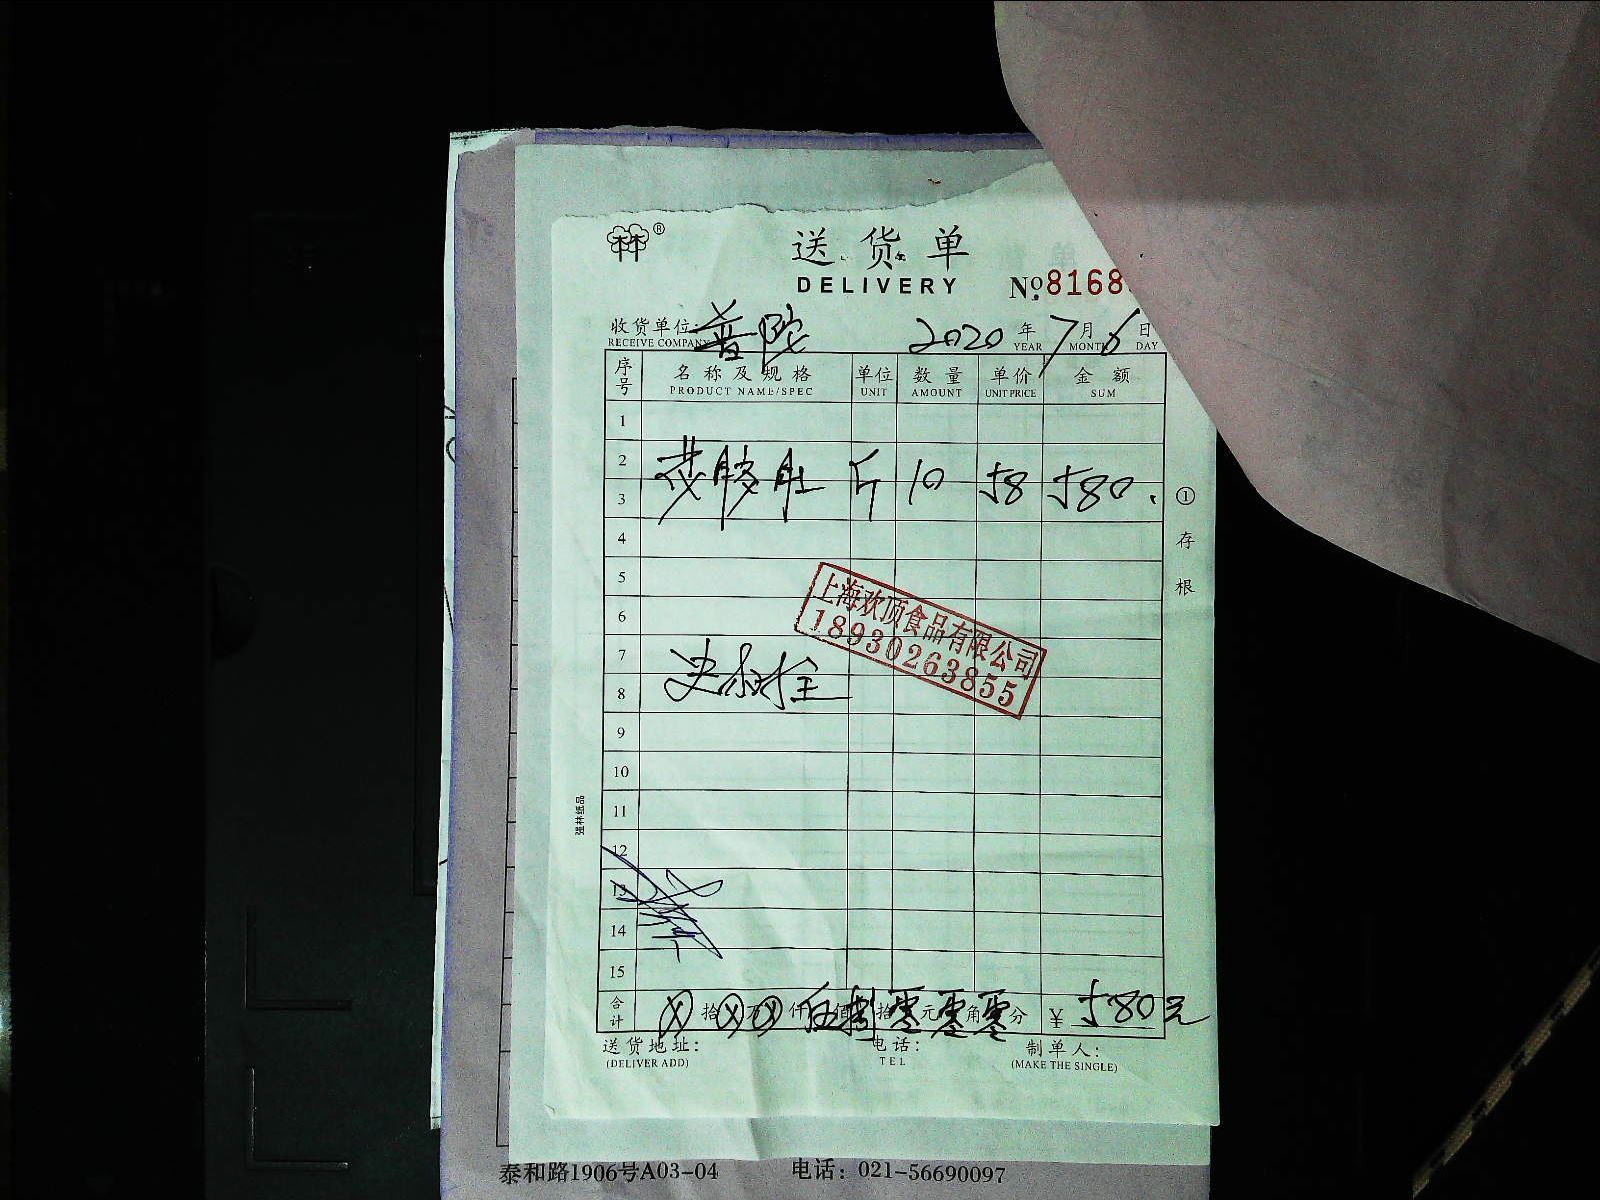 林林®
送货单
DELIVERY
№ 8168
收货单位: 普陀 2020 年 7 月 6 日
RECEIVE COMPANY YEAR MONTH DAY
序号 名称及规格 单位 数量 单价 金额
PRODUCT NAME/SPEC UNIT AMOUNT UNIT PRICE SUM
1
2
3
斤 10 58 580.
4
5
6
7
8
9
10
11
12
13
14
15
上海欢顶食品有限公司
18930263855
①存根
强林纸品
合计 拾 万 仟 伍 佰 捌 拾 零 元 零 角 零 分 ¥ 580元
送货地址: 电话: 制单人:
(DELIVER ADD) TEL (MAKE THE SINGLE)
泰和路1906号A03-04 电话: 021-56690097